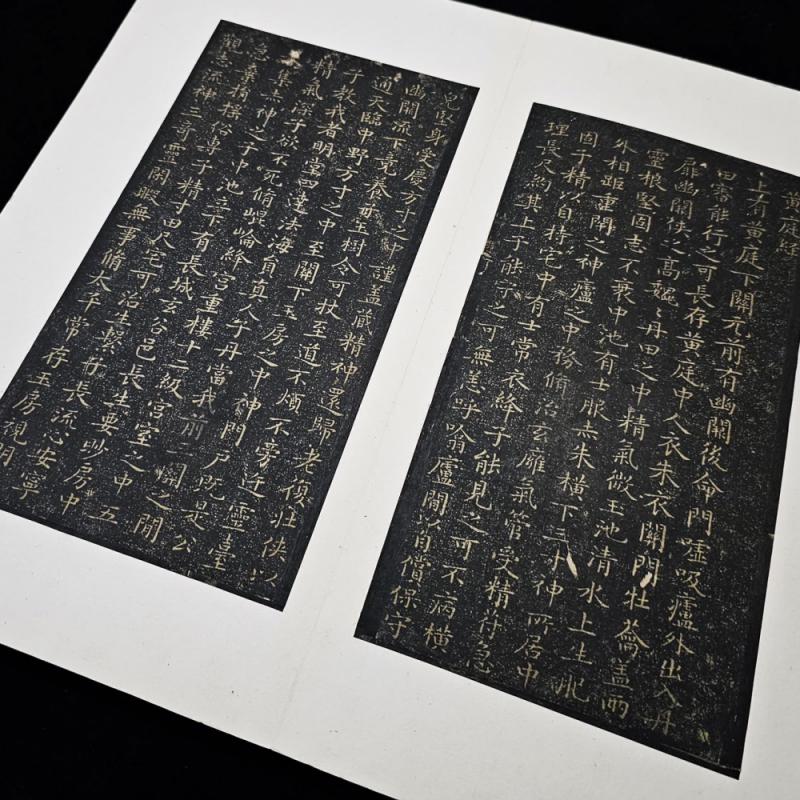 黄庭經
上有黄庭下關元前有幽關後命門噓吸廬外出入丹
田審能行之可長存黄庭中人衣朱衣關門牡蘥蓋兩
扉幽關侠之高巍〻丹田之中精氣微玉池清水上生肥
靈根堅固志不衰中池有士服赤朱橫下三寸神所居中
外相距重閉之神廬之中務脩治玄廱氣管受精符急
固子精以自持宅中有士常衣絳子能見之可不病橫
理長尺約其上子能守之可無恙呼噏廬間以自償保守
完堅身受慶方寸之中謹蓋藏精神還歸老復壯侠以
幽關流下竟養子玉樹令可杖至道不煩不旁迕靈臺
通天臨中野方寸之中至關下玉房之中神門戶既是公
子教我者明堂四達法海員真人子丹當我前三關之間
精氣深子欲不死脩崐崘絳宮重樓十二級宮室之中五
集赤神之子中池立下有長城玄谷邑長生要眇房中
急棄捐搖俗專子精寸田尺宅可治生繫子長流心安寧
觀志流神三奇靈閑暇無事脩太平常存玉房視明